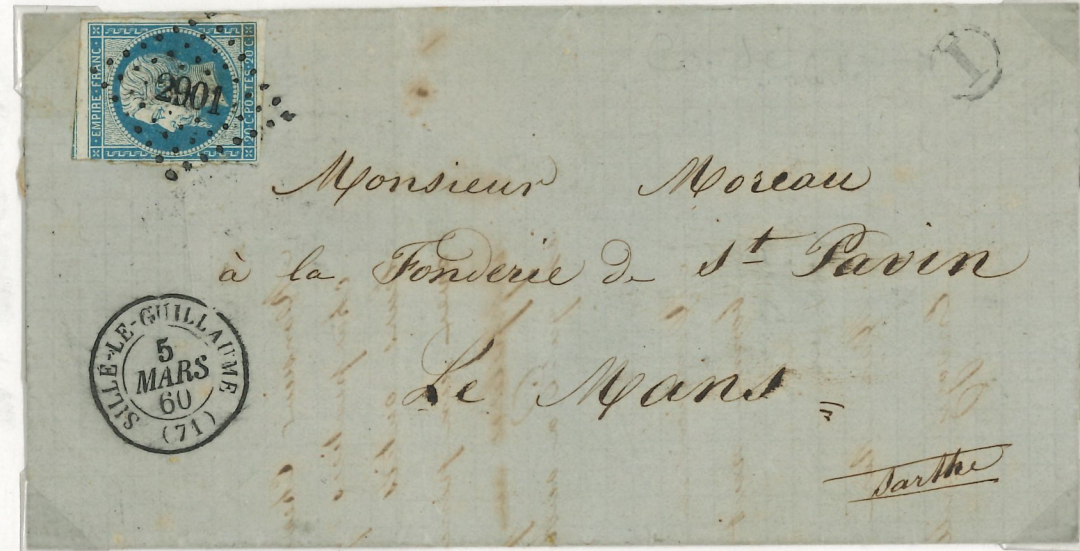 EMPIRE FRANC.
20 C. POSTES 20 C.
2901
I
Monsieur Moreau
à la Fonderie de St Pavin
Le Mans
Sarthe
SILLÉ-LE-GUILLAUME
5
MARS
60
(71)